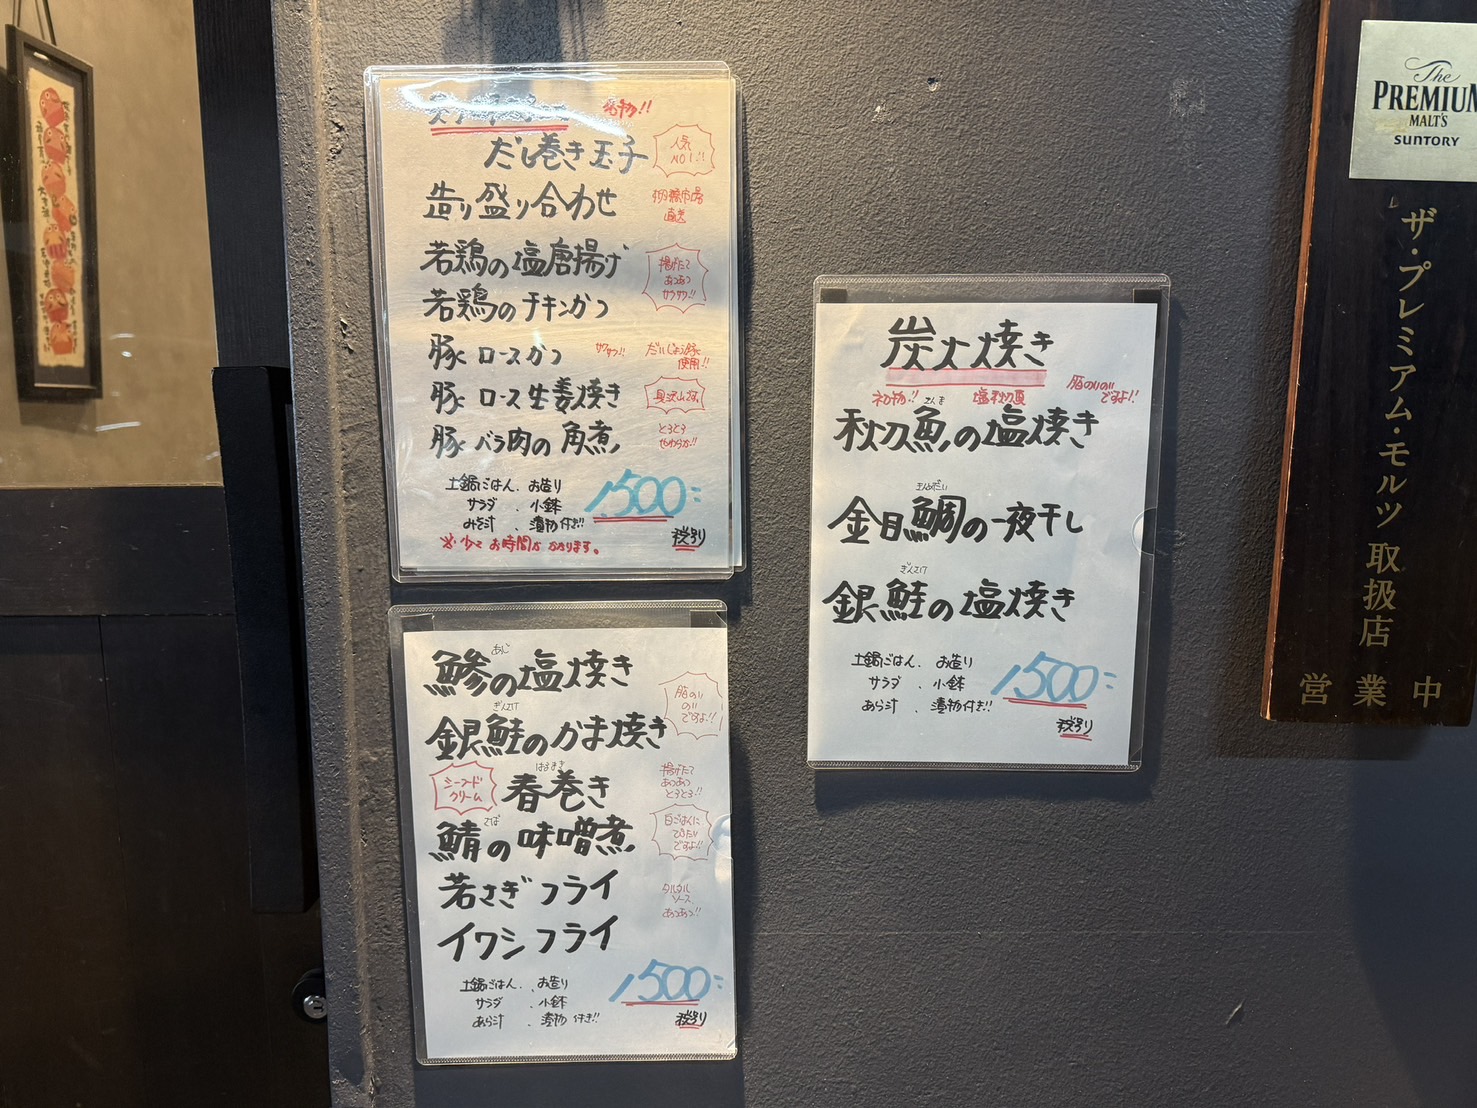 だし巻き玉子
人気
NO1!!
造り盛り合わせ
直送
若鶏の塩唐揚げ
揚げたて
あつあつ
サクサク!!
若鶏のチキンかつ
豚ロースかつ
サクサク!!
使用!!
豚ロース生姜焼き
具沢山です。
豚バラ肉の角煮
とろとろ
やわらか!!
土鍋ごはん、お造り
サラダ、小鉢
みそ汁、漬物付き!!
1,500-
※少々お時間かかります。
税別
あじ
鯵の塩焼き
脂のり
のり
ですよ!!
ぎんざけ
銀鮭のかま焼き
シーフード
クリーム
はるまき
春巻き
揚げたて
あつあつ
とろとろ!!
さば
鯖の味噌煮
白ごはんに
ぴったり
ですよ!!
若さぎフライ
タルタル
ソース
あつあつ!!
イワシフライ
土鍋ごはん、お造り
サラダ、小鉢
あら汁、漬物付き!!
1,500-
税別
炭火焼き
初物!!
さんま
脂のりのり
ですよ!!
秋刀魚の塩焼き
きんめだい
金目鯛の一夜干し
ぎんざけ
銀鮭の塩焼き
土鍋ごはん、お造り
サラダ、小鉢
あら汁、漬物付き!!
1,500-
税別
The
PREMIUM
MALT'S
SUNTORY
ザ・プレミアム・モルツ 取扱店
営業中